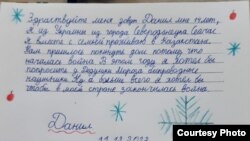 Здравствуйте меня зовут Данил мне лет,
я из Украины из города Северодонецка Сейчас
Я вместе с семьей проживаю в Казахстане.
Нам пришлось покинуть дом потому что
началась война В этом году я хотел бы
попросить у Дедушки Мороза беспроводные
наушники Ну а больше всего я хотел бы
чтобы в моей стране закончилась война.
Данил
11.12.2022
Courtesy Photo